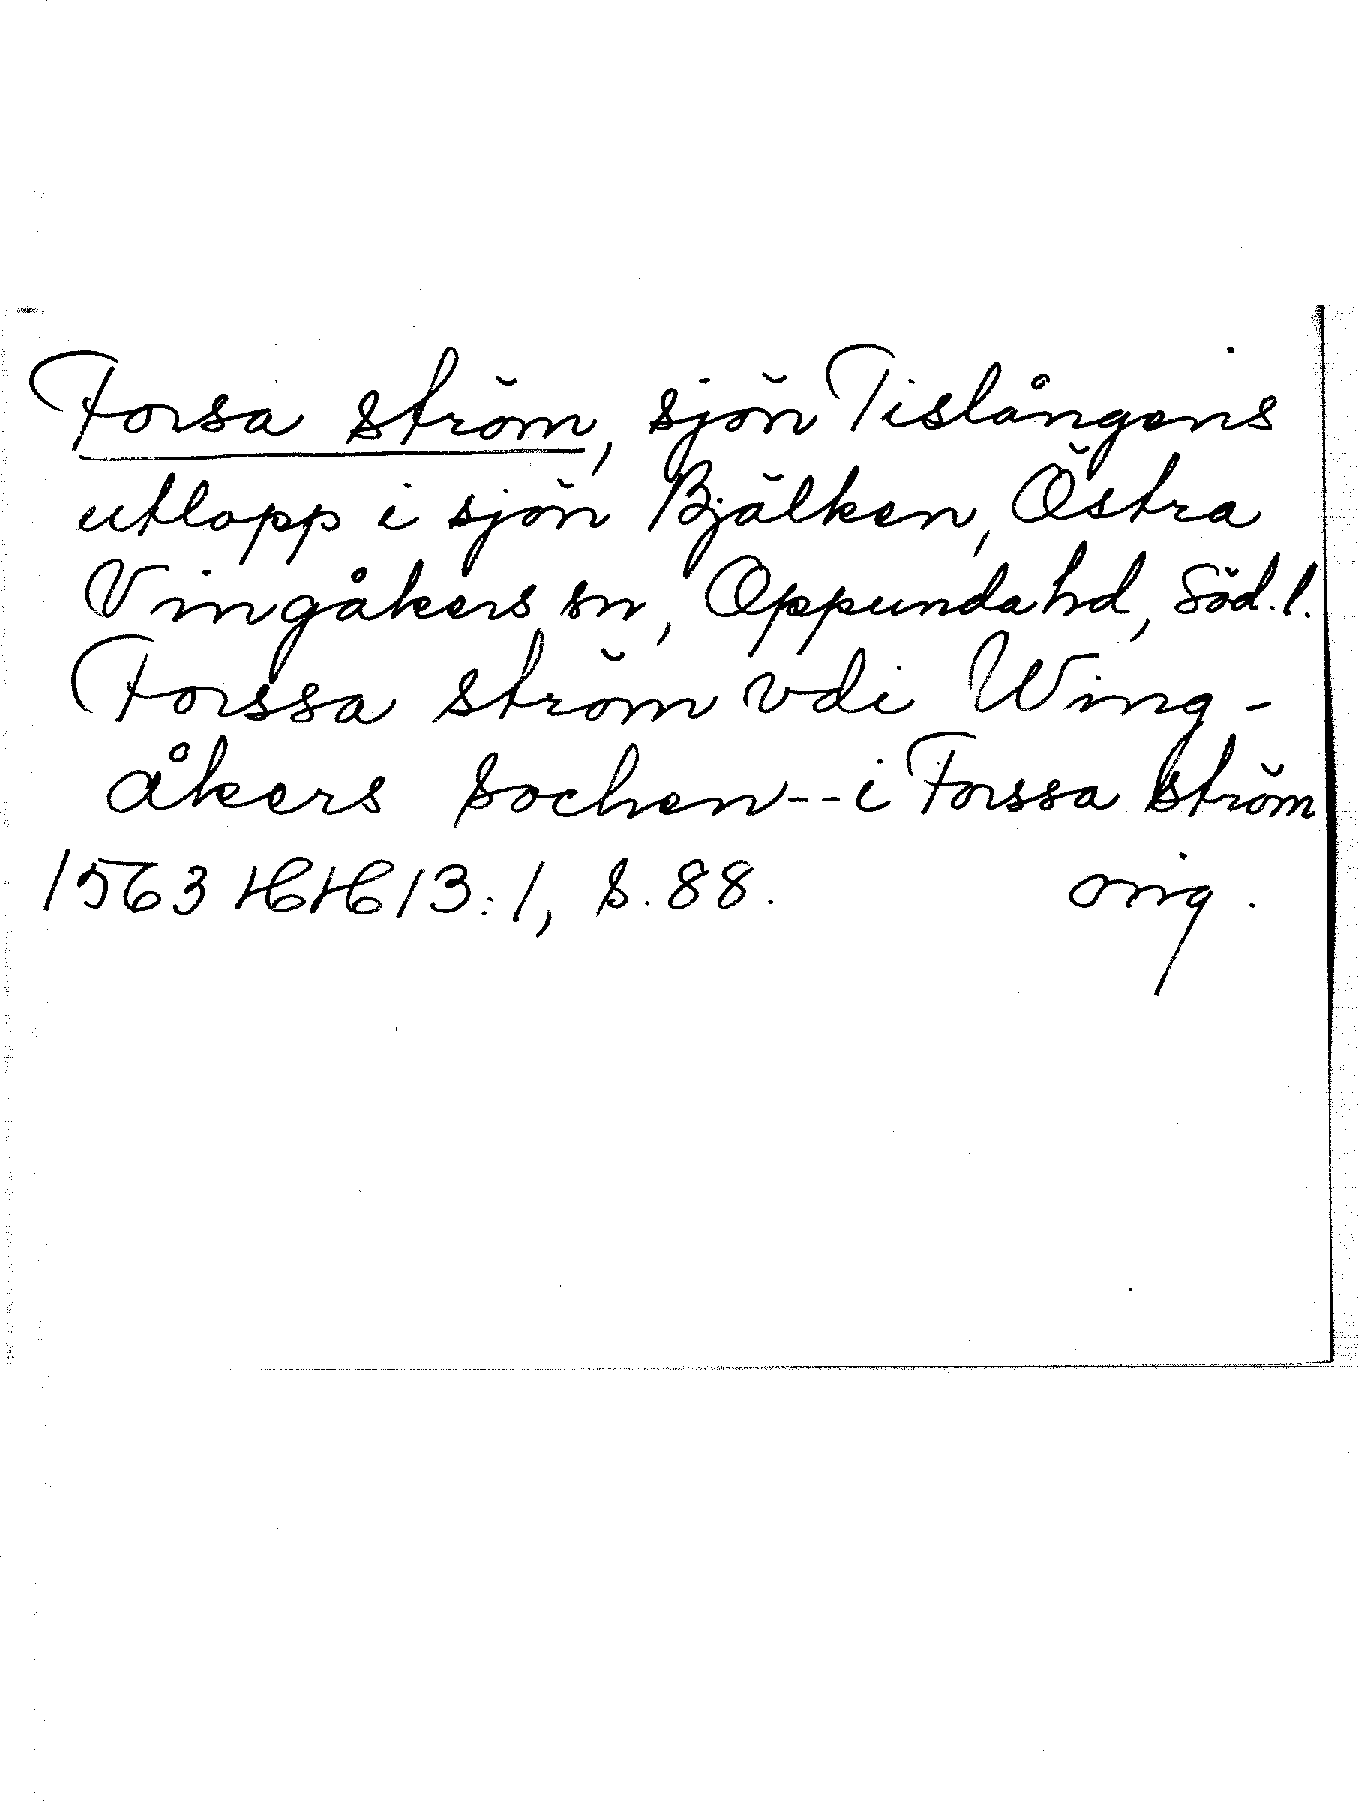 Forsa ström, sjön Tislångens
utlopp i sjön Bjälken, Östra
Vingåkers sn, Oppunda hd, Söd. l.
Forssa ström vdi Wing-
åkers sochen -- i Forssa ström
1563 HH 13:1, s. 88. orig.